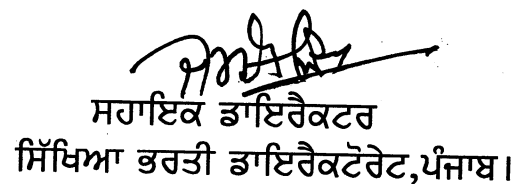 ਸਹਾਇਕ ਡਾਇਰੈਕਟਰ
ਸਿੱਖਿਆ ਭਰਤੀ ਡਾਇਰੈਕਟੋਰੇਟ,ਪੰਜਾਬ।